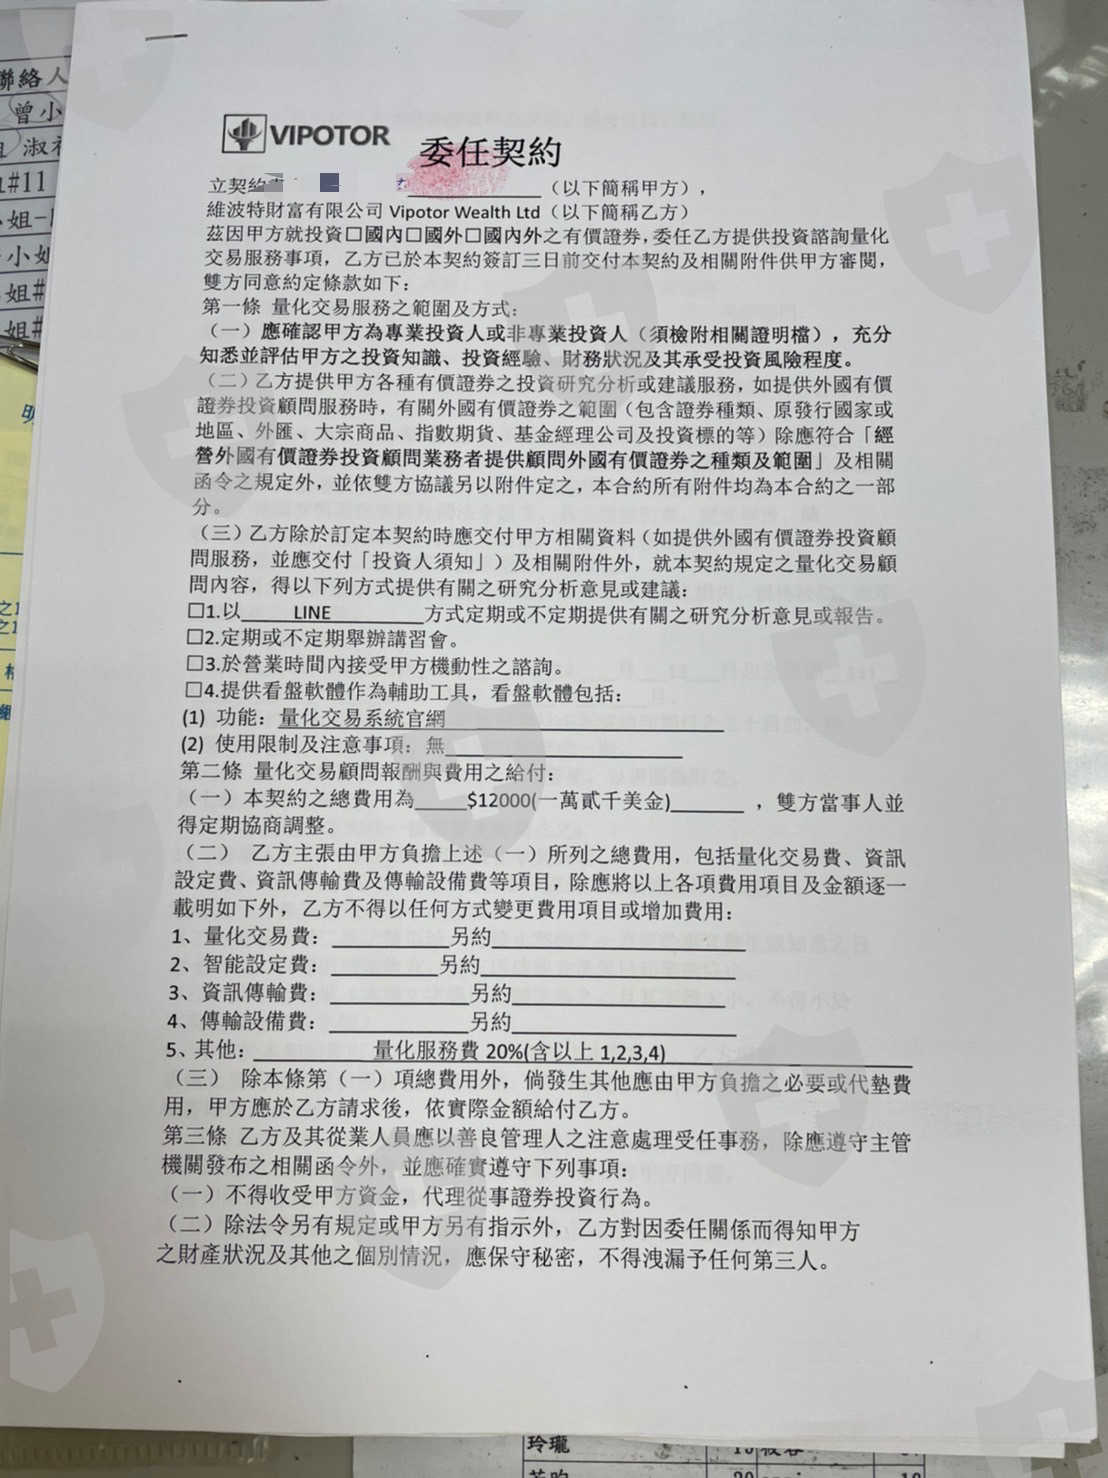 聯絡人
曾小
淑
#11
小姐
小姐
姐#
姐#
VIPOTOR
委任契約
立契約 （以下簡稱甲方），
維波特財富有限公司 Vipotor Wealth Ltd（以下簡稱乙方）
茲因甲方就投資□國內□國外□國內外之有價證券，委任乙方提供投資諮詢量化
交易服務事項，乙方已於本契約簽訂三日前交付本契約及相關附件供甲方審閱，
雙方同意約定條款如下：
第一條 量化交易服務之範圍及方式：
（一）應確認甲方為專業投資人或非專業投資人（須檢附相關證明檔），充分
知悉並評估甲方之投資知識、投資經驗、財務狀況及其承受投資風險程度。
（二）乙方提供甲方各種有價證券之投資研究分析或建議服務，如提供外國有價
證券投資顧問服務時，有關外國有價證券之範圍（包含證券種類、原發行國家或
地區、外匯、大宗商品、指數期貨、基金經理公司及投資標的等）除應符合「經
營外國有價證券投資顧問業務者提供顧問外國有價證券之種類及範圍」及相關
函令之規定外，並依雙方協議另以附件定之，本合約所有附件均為本合約之一部
分。
（三）乙方除於訂定本契約時應交付甲方相關資料（如提供外國有價證券投資顧
問服務，並應交付「投資人須知」）及相關附件外，就本契約規定之量化交易顧
問內容，得以下列方式提供有關之研究分析意見或建議：
□1.以 LINE 方式定期或不定期提供有關之研究分析意見或報告。
□2.定期或不定期舉辦講習會。
□3.於營業時間內接受甲方機動性之諮詢。
□4.提供看盤軟體作為輔助工具，看盤軟體包括：
(1) 功能：量化交易系統官網
(2) 使用限制及注意事項：無
第二條 量化交易顧問報酬與費用之給付：
（一）本契約之總費用為 $12000(一萬貳千美金) ，雙方當事人並
得定期協商調整。
（二） 乙方主張由甲方負擔上述（一）所列之總費用，包括量化交易費、資訊
設定費、資訊傳輸費及傳輸設備費等項目，除應將以上各項費用項目及金額逐一
載明如下外，乙方不得以任何方式變更費用項目或增加費用：
1、量化交易費： 另約
2、智能設定費： 另約
3、資訊傳輸費： 另約
4、傳輸設備費： 另約
5、其他： 量化服務費 20%(含以上 1,2,3,4)
（三） 除本條第（一）項總費用外，倘發生其他應由甲方負擔之必要或代墊費
用，甲方應於乙方請求後，依實際金額給付乙方。
第三條 乙方及其從業人員應以善良管理人之注意處理受任事務，除應遵守主管
機關發布之相關函令外，並應確實遵守下列事項：
（一）不得收受甲方資金，代理從事證券投資行為。
（二）除法令另有規定或甲方另有指示外，乙方對因委任關係而得知甲方
之財產狀況及其他之個別情況，應保守秘密，不得洩漏予任何第三人。
玲瓏